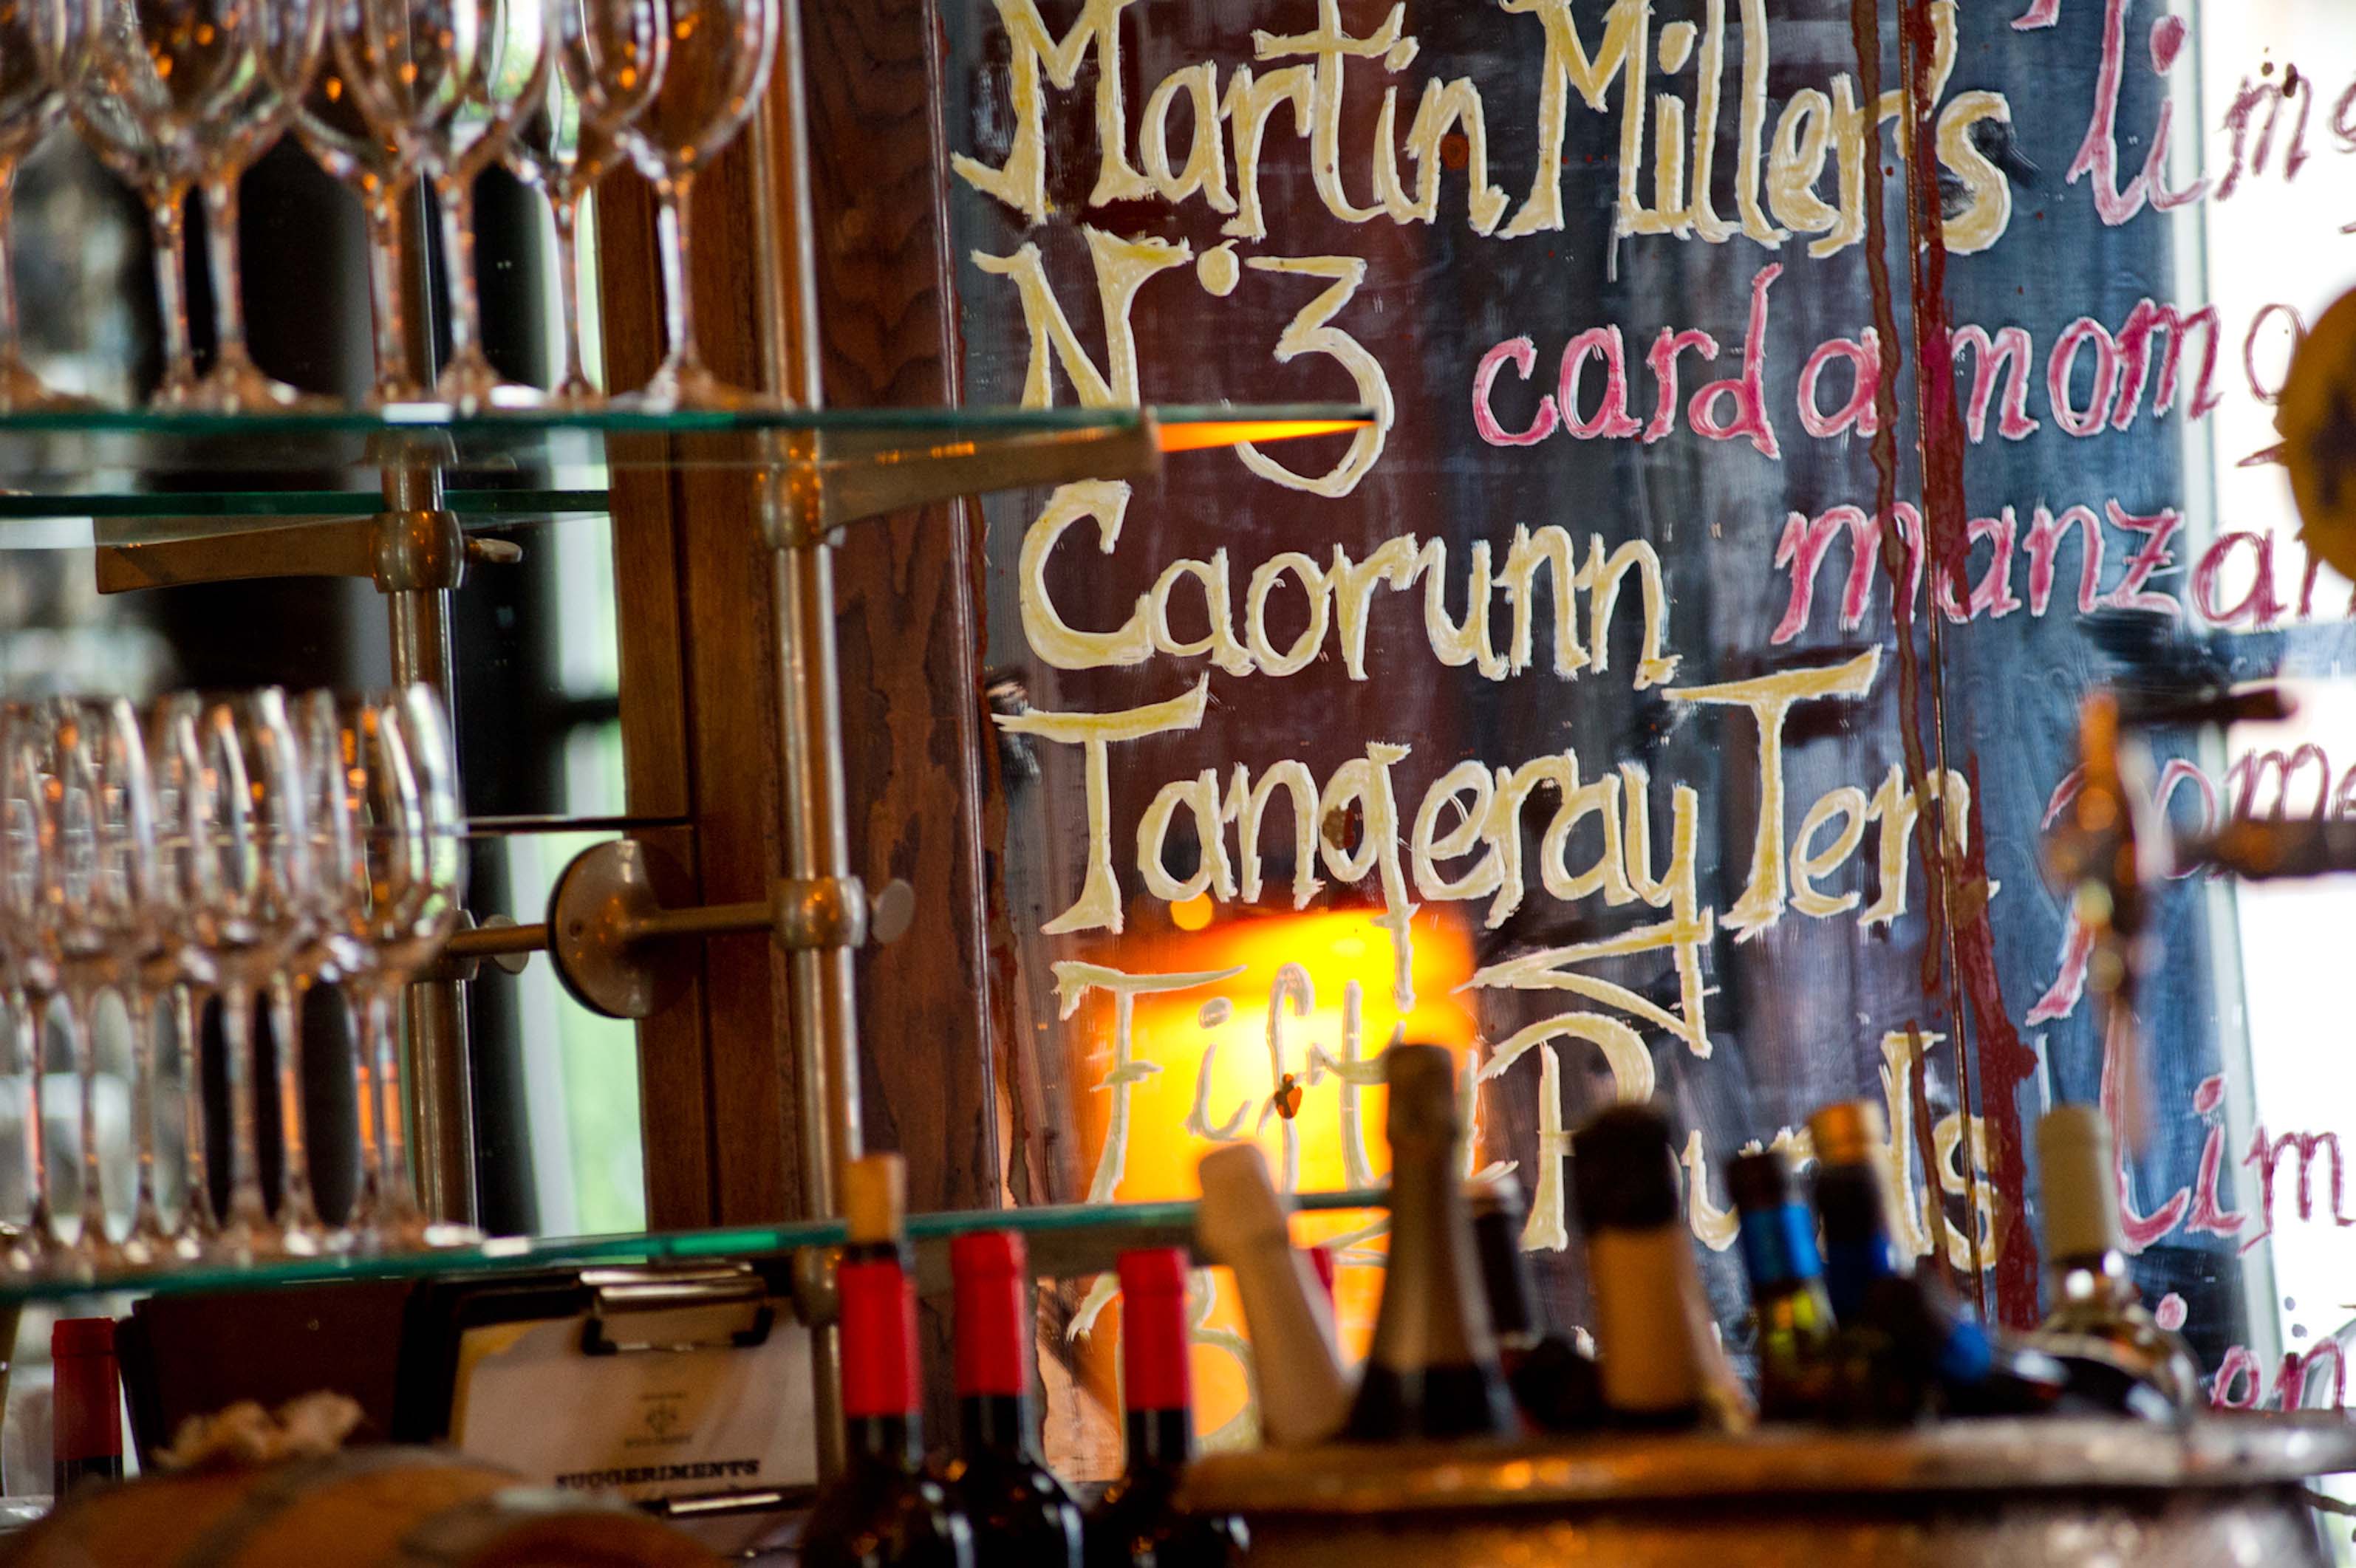 Martin Miller's
N°3 cardamomo
Caorunn manzan
Tangeray Ten
Fifty Punds
lim
SUGGERIMENTS